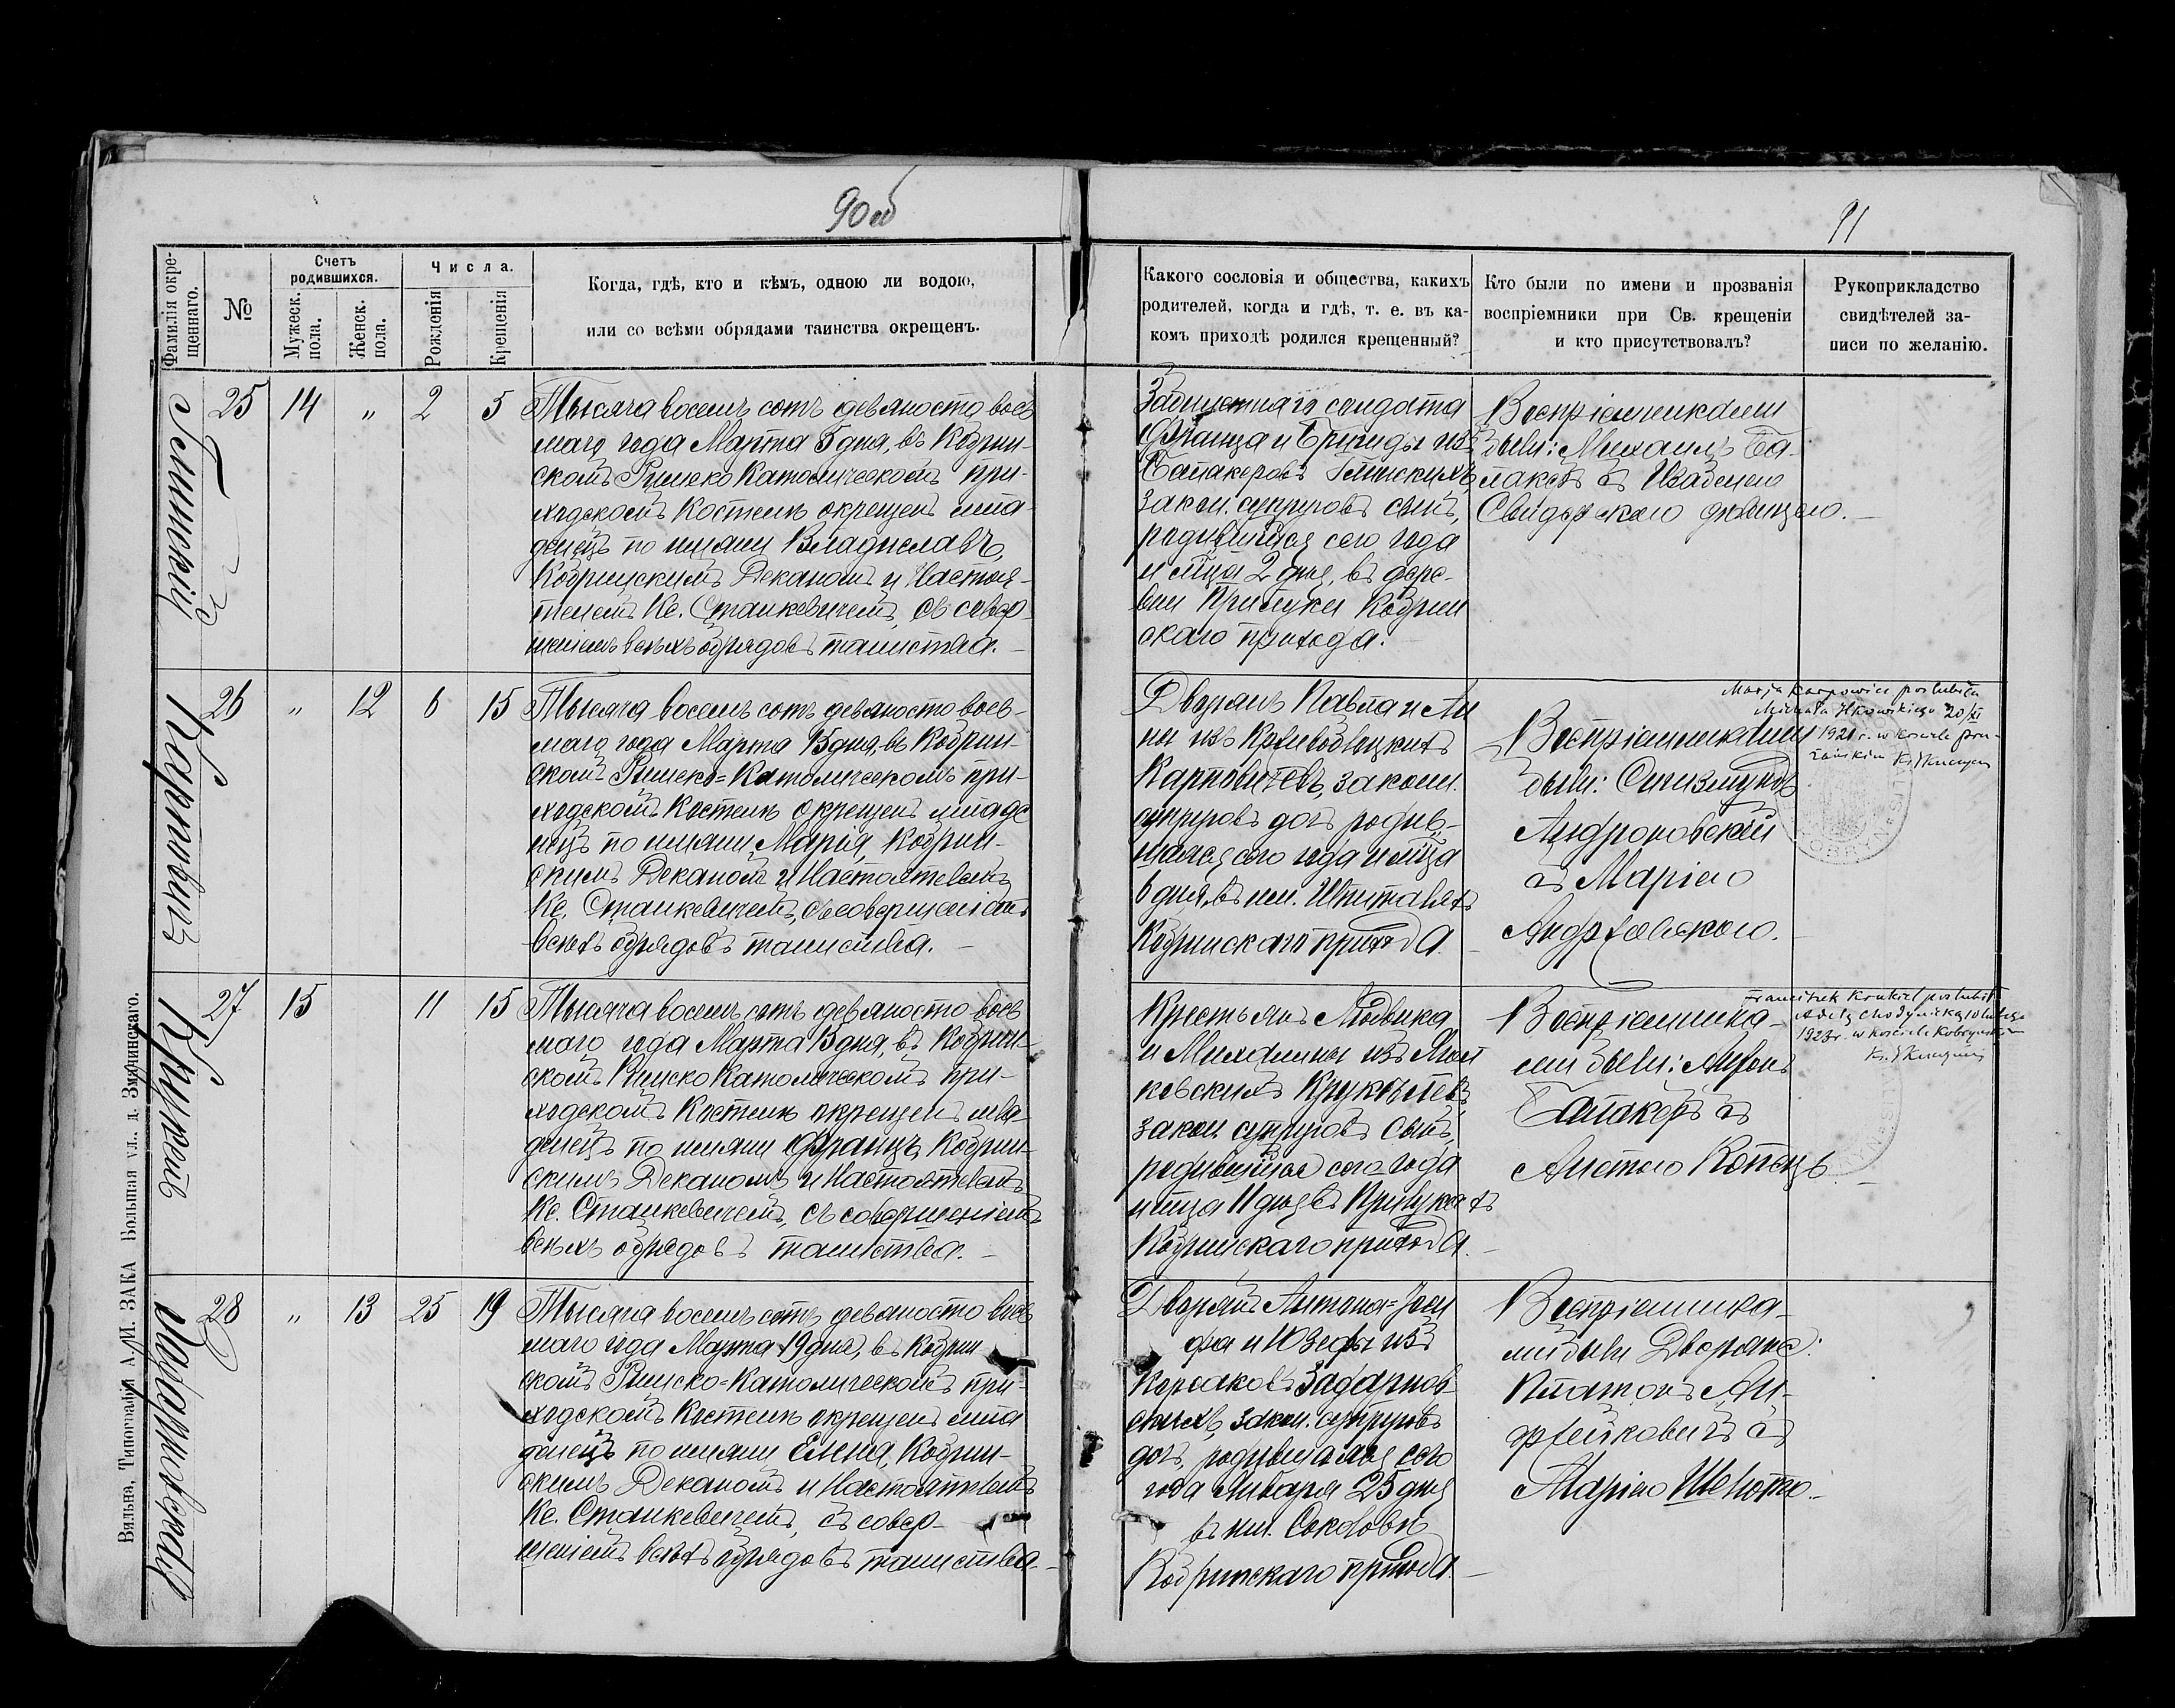 90об
91
Фамилія окре-
щеннаго.
№
Счетъ
родившихся.
Мужеск.
пола.
Женск.
пола.
Числа.
Рожденія
Крещенія
Когда, гдѣ, кто и кѣмъ, одною ли водою,
или со всѣми обрядами таинства окрещенъ.
Какого сословія и общества, какихъ
родителей, когда и гдѣ, т. е. въ ка-
комъ приходѣ родился крещенный?
Кто были по имени и прозванія
воспріемники при Св. крещеніи
и кто присутствовалъ?
Рукоприкладство
свидѣтелей за-
писи по желанію.
25 14 „ 2 5
Тысяча восемь сотъ девяносто вось
маго года Марта 5 дня, въ Кобрин-
скомъ Римско Католическомъ при-
ходскомъ Костелѣ окрещенъ мла-
денецъ по имени Владиславъ,
Кобринскимъ Деканомъ и Настоя-
телемъ Кс. Станкевичемъ, съ совер-
шеніемъ всѣхъ обрядовъ таинства.
солдата
Франца и Бригиды изъ
закон. супруговъ сынъ,
родившійся сего года
и м-ца 2 дня, въ дере-
вни Прилуки Кобрин
скаго прихода.
Воспріемниками
были: Михаилъ Ба-
съ
26 „ 12 6 15
Карповичъ
Тысяча восемь сотъ девяносто вось-
маго года Марта 15 дня, въ Кобрин-
скомъ Римско=Католическомъ при-
ходскомъ Костелѣ окрещенъ младе
нецъ по имени Марія, Кобрин-
скимъ Деканомъ и Настоятелемъ
Кс. Станкевичемъ, съ совершеніемъ
всѣхъ обрядовъ таинства.
Дворянъ Павла и Ан
ны изъ
Карповичевъ, закон.
супруговъ дочь, родив-
шаяся сего года и м-ца
6 дня, въ им. Шпиталяхъ
Кобринскаго прихода.
Воспріемниками
были: Сигизмундъ
Андроновскій
съ Маріею
Marja Karpowicz poślubiła
Michała 20/XI
1921 r. w kościele
27 15 11 15
Крукель
Тысяча восемь сотъ девяносто вось
маго года Марта 15 дня, въ Кобрин-
скомъ Римско Католическомъ при-
ходскомъ Костелѣ окрещенъ мла-
денецъ по имени Францъ, Кобрин-
скимъ Деканомъ и Настоятелемъ
Кс. Станкевичемъ, съ совершеніемъ
всѣхъ обрядовъ таинства.
Крестьянъ Людвика
и Михалины изъ
закон. супруговъ сынъ,
родившійся сего года
и м-ца 11 дня въ Прилукахъ
Кобринскаго прихода.
Воспріемника-
ми были: Антонъ
съ
Копецъ
Franciszek Krukiel poślubił
1923 r. w kościele Kobryńskim
28 „ 13 25 19
Тысяча восемь сотъ девяносто вось
маго года Марта 19 дня, въ Кобрин
скомъ Римско=Католическомъ при-
ходскомъ Костелѣ окрещенъ мла
денецъ по имени Елена, Кобрин-
скимъ Деканомъ и Настоятелемъ
Кс. Станкевичемъ, съ совер-
шеніемъ всѣхъ обрядовъ таинства.
Дворянъ Антона=Іоси
фа и Юзефы изъ
Корсаковъ
закон. супруговъ
дочь, родившаяся сего
года Января 25 дня
въ им. Соколовѣ
Кобринскаго прихода.
Воспріемника-
ми были Дворяне:
Платонъ
съ
Маріею
Вильна, Типографія А/М. ЗАКА Большая ул., д. Зязинскаго.